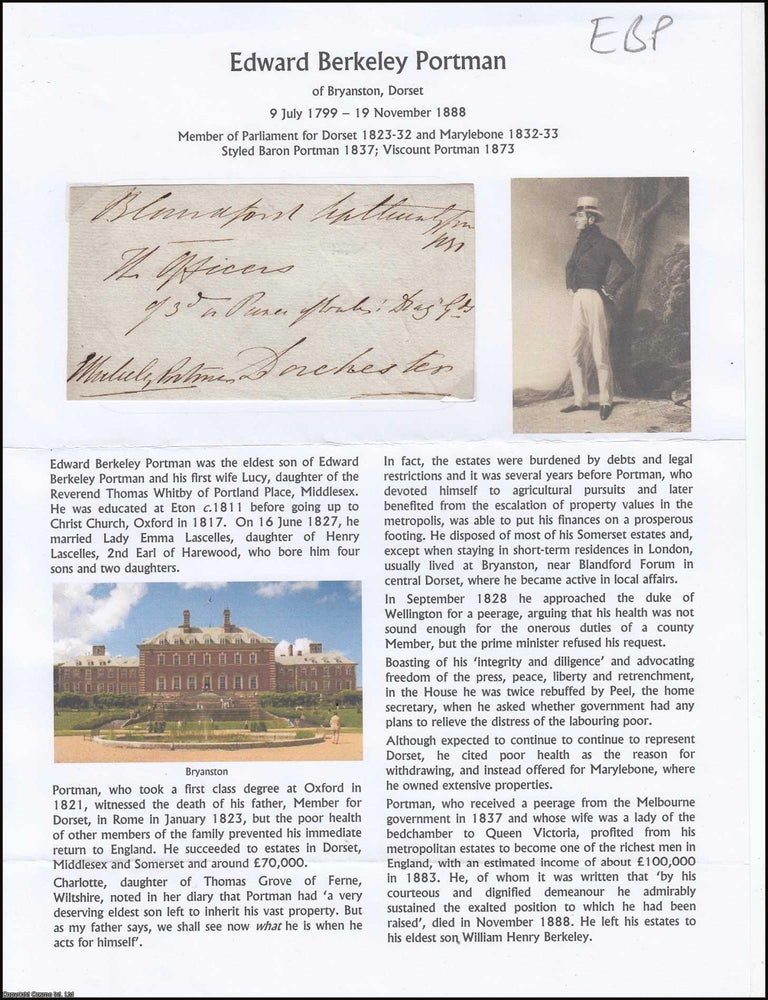 EBP
Edward Berkeley Portman
of Bryanston, Dorset
9 July 1799 – 19 November 1888
Member of Parliament for Dorset 1823-32 and Marylebone 1832-33
Styled Baron Portman 1837; Viscount Portman 1873
Blandford
The Officers
of 3d
Portman Dorchester
Edward Berkeley Portman was the eldest son of Edward
Berkeley Portman and his first wife Lucy, daughter of the
Reverend Thomas Whitby of Portland Place, Middlesex.
He was educated at Eton c.1811 before going up to
Christ Church, Oxford in 1817. On 16 June 1827, he
married Lady Emma Lascelles, daughter of Henry
Lascelles, 2nd Earl of Harewood, who bore him four
sons and two daughters.
Bryanston
Portman, who took a first class degree at Oxford in
1821, witnessed the death of his father, Member for
Dorset, in Rome in January 1823, but the poor health
of other members of the family prevented his immediate
return to England. He succeeded to estates in Dorset,
Middlesex and Somerset and around £70,000.
Charlotte, daughter of Thomas Grove of Ferne,
Wiltshire, noted in her diary that Portman had ‘a very
deserving eldest son left to inherit his vast property. But
as my father says, we shall see now what he is when he
acts for himself’.
In fact, the estates were burdened by debts and legal
restrictions and it was several years before Portman, who
devoted himself to agricultural pursuits and later
benefited from the escalation of property values in the
metropolis, was able to put his finances on a prosperous
footing. He disposed of most of his Somerset estates and,
except when staying in short-term residences in London,
usually lived at Bryanston, near Blandford Forum in
central Dorset, where he became active in local affairs.
In September 1828 he approached the duke of
Wellington for a peerage, arguing that his health was not
sound enough for the onerous duties of a county
Member, but the prime minister refused his request.
Boasting of his ‘integrity and diligence’ and advocating
freedom of the press, peace, liberty and retrenchment,
in the House he was twice rebuffed by Peel, the home
secretary, when he asked whether government had any
plans to relieve the distress of the labouring poor.
Although expected to continue to continue to represent
Dorset, he cited poor health as the reason for
withdrawing, and instead offered for Marylebone, where
he owned extensive properties.
Portman, who received a peerage from the Melbourne
government in 1837 and whose wife was a lady of the
bedchamber to Queen Victoria, profited from his
metropolitan estates to become one of the richest men in
England, with an estimated income of about £100,000
in 1883. He, of whom it was written that ‘by his
courteous and dignified demeanour he admirably
sustained the exalted position to which he had been
raised’, died in November 1888. He left his estates to
his eldest son, William Henry Berkeley.
Copyright Cosmo Int. Ltd